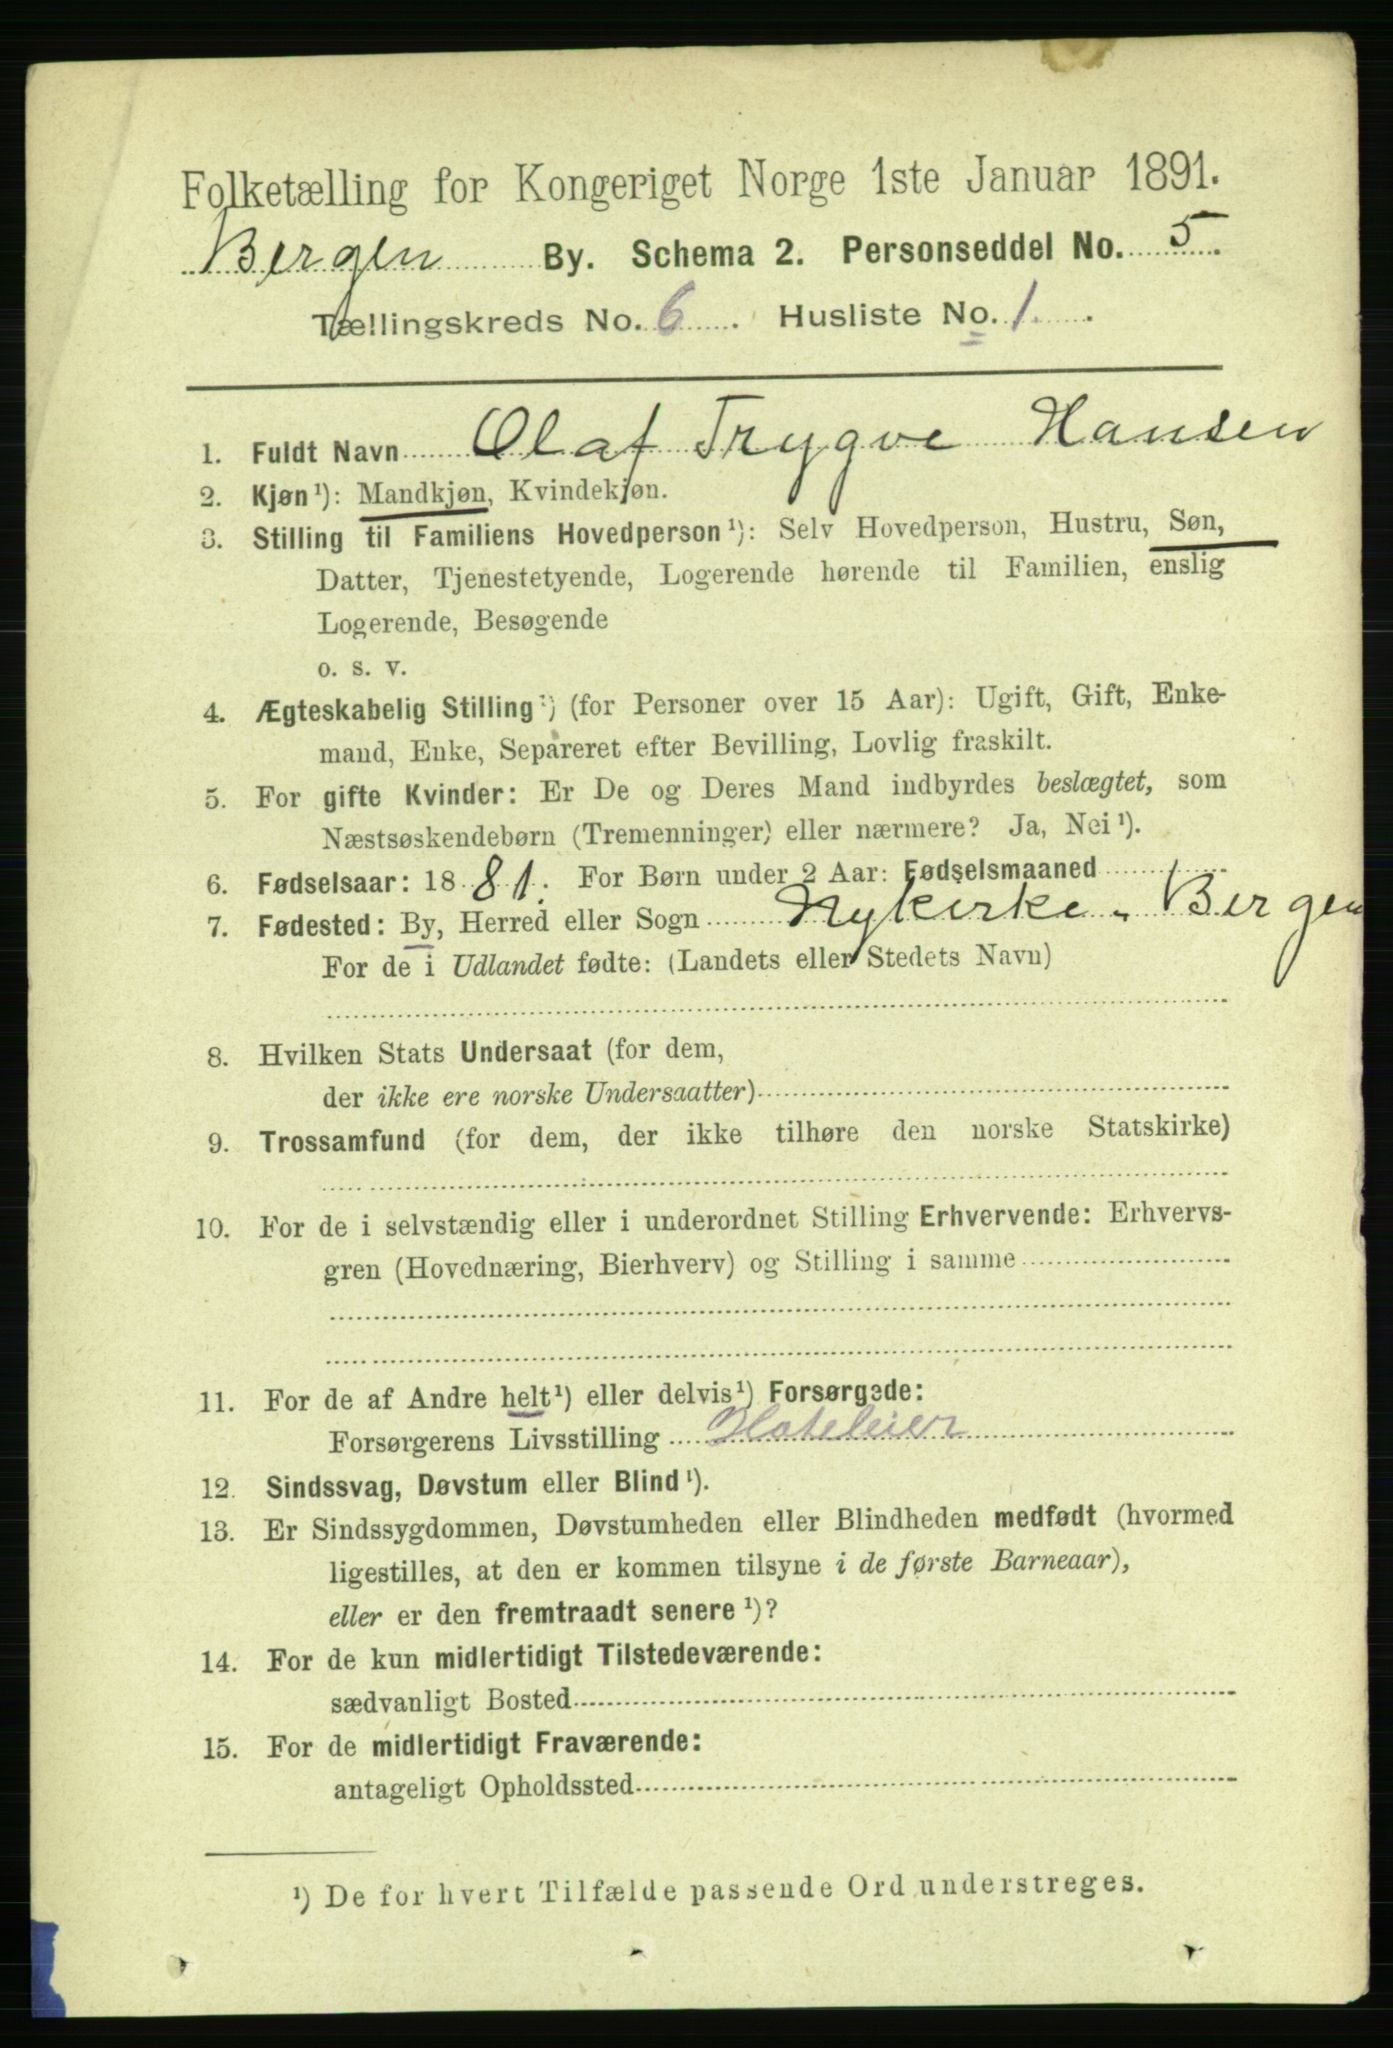 Folketælling for Kongeriget Norge 1ste Januar 1891.
Bergen By. Schema 2. Personseddel No. 5.
Tællingskreds No. 6. Husliste No. 1.
1. Fuldt Navn Olaf Trygve Hansen
2. Kjøn¹): Mandkjøn, Kvindekjøn.
3. Stilling til Familiens Hovedperson¹): Selv Hovedperson, Hustru, Søn,
Datter, Tjenestetyende, Logerende hørende til Familien, enslig
Logerende, Besøgende
o. s. v.
4. Ægteskabelig Stilling¹) (for Personer over 15 Aar): Ugift, Gift, Enke-
mand, Enke, Separeret efter Bevilling, Lovlig fraskilt.
5. For gifte Kvinder: Er De og Deres Mand indbyrdes beslægtet, som
Næstsøskendebørn (Tremenninger) eller nærmere? Ja, Nei¹).
6. Fødselsaar: 1881. For Børn under 2 Aar: Fødselsmaaned
7. Fødested: By, Herred eller Sogn Nykirke - Bergen
For de i Udlandet fødte: (Landets eller Stedets Navn)
8. Hvilken Stats Undersaat (for dem,
der ikke ere norske Undersaatter)
9. Trossamfund (for dem, der ikke tilhøre den norske Statskirke)
10. For de i selvstændig eller i underordnet Stilling Erhvervende: Erhvervs-
gren (Hovednæring, Bierhverv) og Stilling i samme
11. For de af Andre helt¹) eller delvis¹) Forsørgede:
Forsørgerens Livsstilling Hoteleier
12. Sindssvag, Døvstum eller Blind¹).
13. Er Sindssygdommen, Døvstumheden eller Blindheden medfødt (hvormed
ligestilles, at den er kommen tilsyne i de første Barneaar),
eller er den fremtraadt senere¹)?
14. For de kun midlertidigt Tilstedeværende:
sædvanligt Bosted
15. For de midlertidigt Fraværende:
antageligt Opholdssted
¹) De for hvert Tilfælde passende Ord understreges.